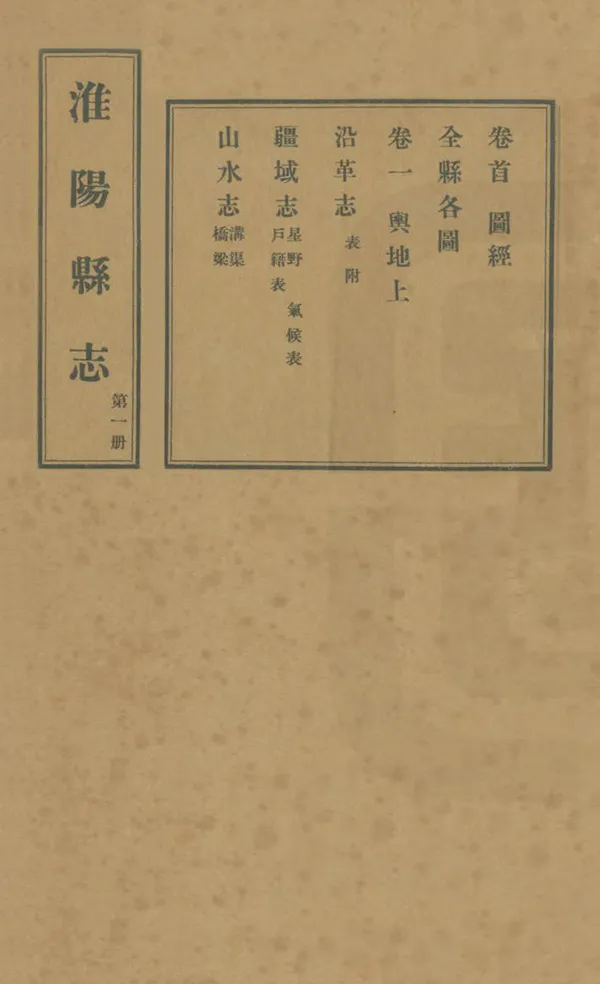 卷首 圖經
全縣各圖
卷一 輿地上
沿革志 表附
疆域志 星野 氣候表
戶籍表
山水志 溝渠
橋梁
淮陽縣志
第一册